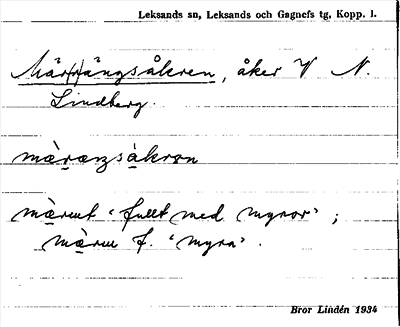 Leksands sn, Leksands och Gagnefs tg, Kopp. l.
Mär/r/ängsåkren, åker V N.
Lindberg.
mæ̀ræŋsåkrən
mæ̀rut 'fullt med myror';
mæ̀ru f. 'myra'.
Bror Lindén 1934